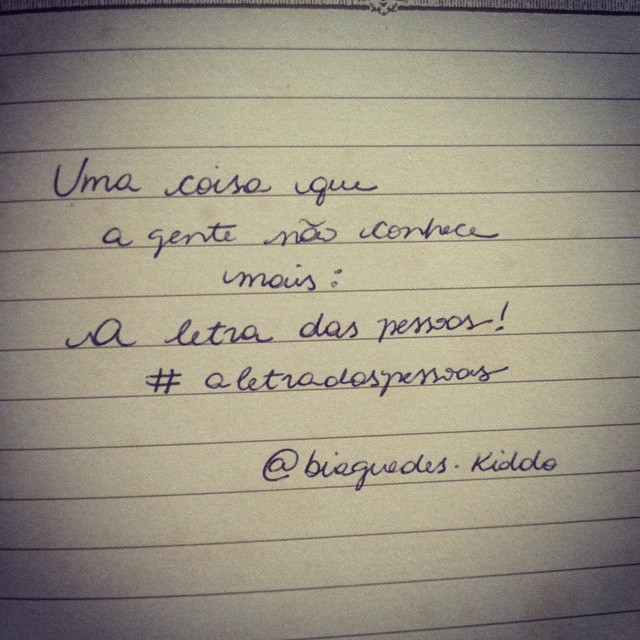 Uma coisa que
a gente não conhece
mais:
A letra das pessoas!
# aletradaspessoas
@biaguedes.kiddo